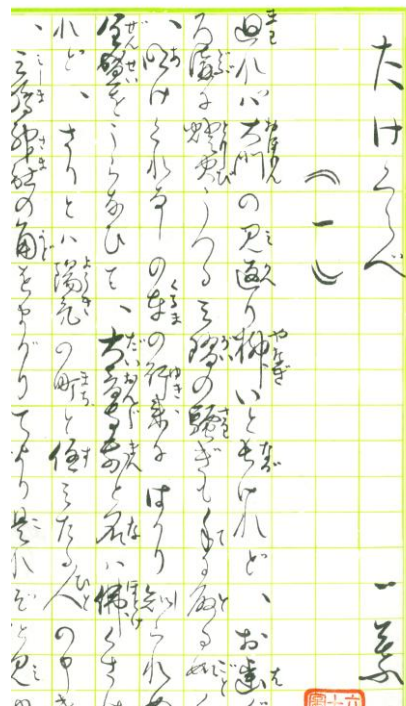 たけくらべ 一葉
（一）
廻れバ大門の見返り柳いと長けれど、お歯ぐ
ろ溝に燈火うつる三階の騒ぎも手に取る如く
、明けくれなしの車の行来にはかり知られぬ
全盛をうらなひて、大音寺前と名ハ佛くさけ
れど、さりとハ陽気の町と住みたる人の申き
、三嶋神社の角をまがりてより是れぞと見